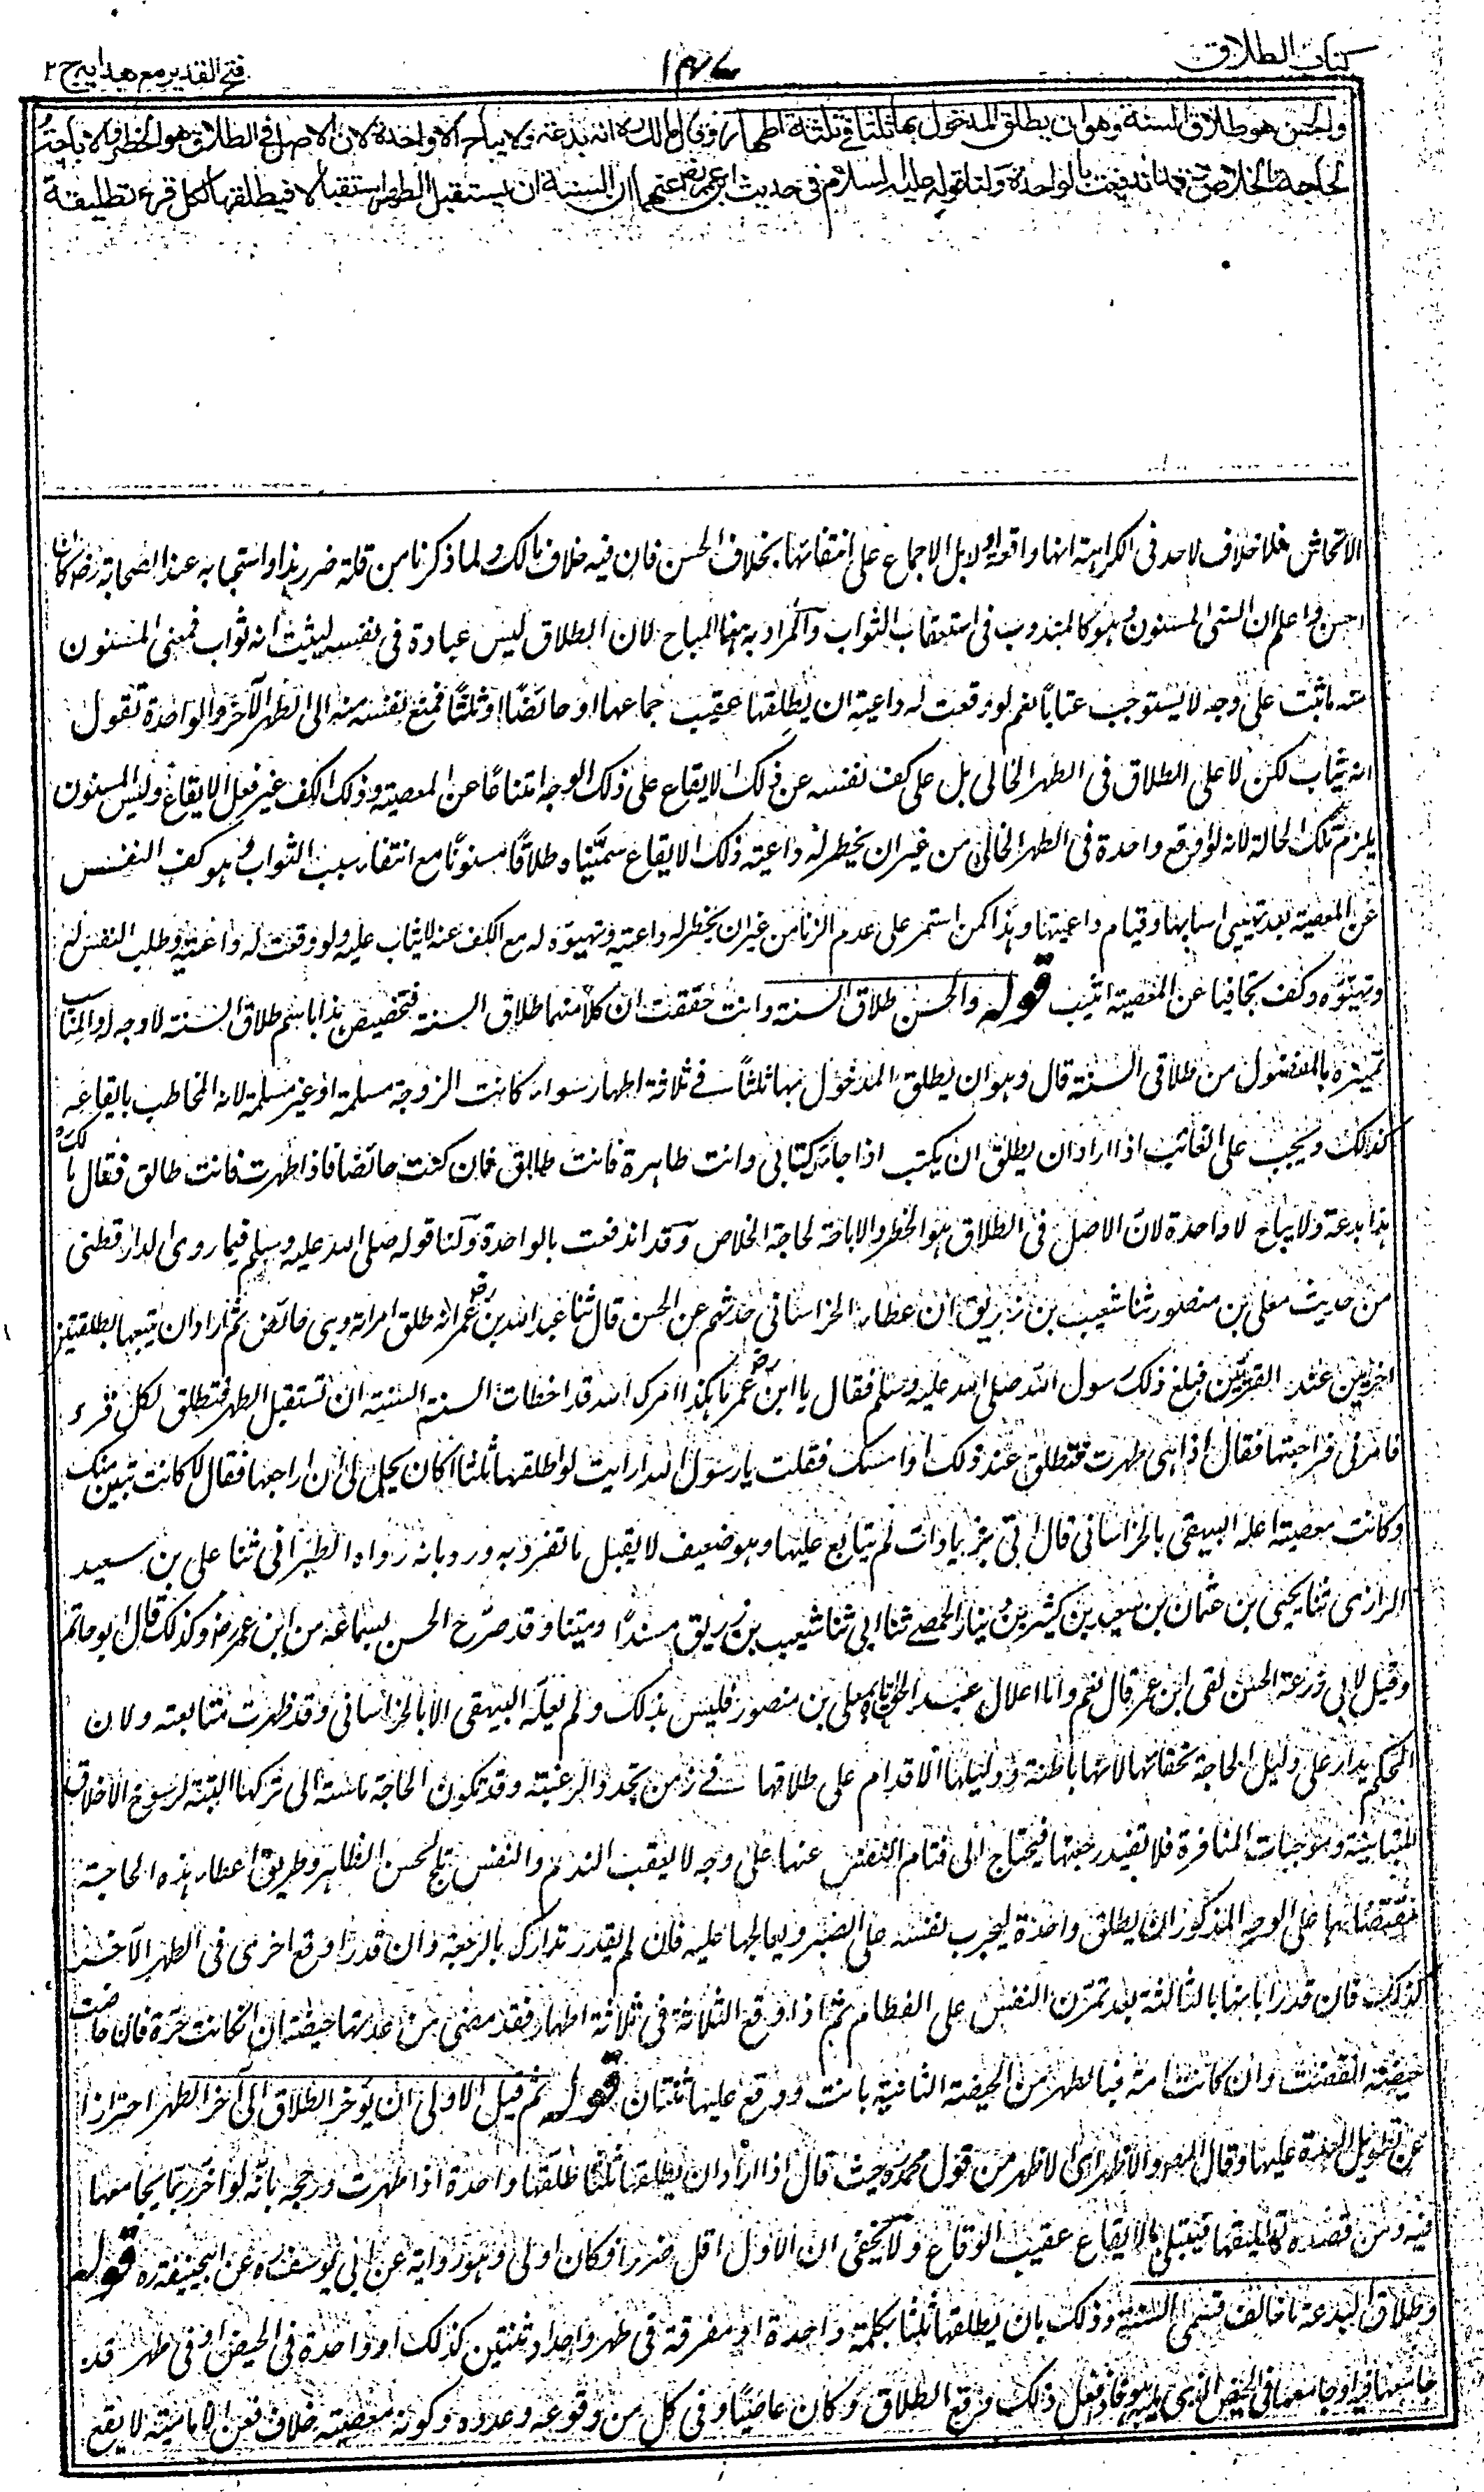 كتاب الطلاق
١٤٧
فتح القدير مع هدايه ج ٢
والحسن هو طلاق السنة وهو ان يطلق المدخول بها ثلثا في ثلثة اطهار وقال مالك رح انه بدعة ولا يباح الا واحدة لان الاصل في الطلاق هو الحظر والاباحة
لحاجة الخلاص وقد اندفعت بالواحدة ولنا قوله عليه السلام في حديث ابن عمر رض ان السنة ان يستقبل الطهر استقبالا فيطلقها لكل قرء تطليقة
الاتحاش فلا خلاف لاحد فى الكراهة انها واقعة اولا بل الاجماع على انتفائها بخلاف الحسن فان فيه خلاف مالك ولما ذكرنا من قلة ضرر هذا واستحبابه عند الصحابة رض كان
احسن واعلم ان السنى المسنون وهو كالمندوب فى استعقاب الثواب والمراد به هنا المباح لان الطلاق ليس عبادة فى نفسه ليثبت له ثواب فمعنى المسنون
منه ماثبت على وجه لا يستوجب عتابا نعم لو وقعت له داعية ان يطلقها عقيب جماعها او حائضا او ثلثا فمنع نفسه منه الى الطهر الآخر والواحدة نقول
انه يثاب لكن لا على الطلاق فى الطهر الخالى بل على كف نفسه عن ذلك الايقاع على ذلك الوجه امتناعا عن المعصية وذلك الكف غير فعل الايقاع وليس المسنون
يلزم تلك الحالة لانه لو اوقع واحدة فى الطهر الخالى من غير ان يخطر له داعية ذلك الايقاع سميناه طلاقا مسنونا مع انتفاء سبب الثواب وهو كف النفس
عن المعصية بعد تهيئ اسبابها وقيام داعيتها وهذا كمن استمر على عدم الزنا من غير ان يخطر له داعيته وتهيؤه له مع الكف عنه لا يثاب عليه ولو وقعت له داعيته وطلب النفس له
وتهيؤه وكف تجافيا عن المعصية اثيب قوله والحسن طلاق السنة وانت حققت ان كلا منهما طلاق السنة فتخصيص هذا باسم طلاق السنة لا وجه له والمناسب
تمييزه بالمفضول من طلاقى السنة قال وهو ان يطلق المدخول بها ثلثا فى ثلاثة اطهار سواء كانت الزوجة مسلمة او غير مسلمة لانه المخاطب بايقاعه
كذلك ويجب على الغائب اذا اراد ان يطلق ان يكتب اذا جاءك كتابى وانت طاهرة فانت طالق فان كنت حائضا فاذا طهرت فانت طالق فقال مالك رح
هذا بدعة ولا يباح الا واحدة لان الاصل فى الطلاق هو الحظر والاباحة لحاجة الخلاص وقد اندفعت بالواحدة ولنا قوله صلى الله عليه وسلم فيما روى الدارقطنى
من حديث معلى بن منصور ثنا شعيب بن زريق ان عطاء الخراسانى حدثهم عن الحسن قال ثنا عبد الله بن عمر رض انه طلق امراته وهى حائض ثم اراد ان يتبعها بطلقتين
اخريين عند القرئين فبلغ ذلك رسول الله صلى الله عليه وسلم فقال يا ابن عمر رض ما هكذا امرك الله قد اخطات السنة السنة ان تستقبل الطهر فتطلق لكل قرء
فامرنى فراجعتها فقال اذا هى طهرت فتطلق عند ذلك او امسك فقلت يا رسول الله ارايت لو طلقتها ثلثا اكان يحل لى ان اراجعها فقال لا كانت تبين منك
وكانت معصية اعله البيهقى بالخراسانى قال اتى بزيادات لم يتابع عليها وهو ضعيف لا يقبل ما تفرد به ورد بانه رواه الطبرانى ثنا على بن سعيد
الرازى ثنا يحيى بن عثمان بن سعيد بن كثير بن دينار الحمصى ثنا ابى ثنا شعيب بن زريق مسندا ومتنا وقد صرح الحسن بسماعه من ابن عمر رض وكذلك قال ابو حاتم
وقيل لابى زرعة الحسن لقى ابن عمر قال نعم واما اعلال عبد الحق اياه بمعلى بن منصور فليس بذلك ولم يعله البيهقى الا بالخراسانى وقد ظهرت متابعته ولان
الحكم يدار على دليل الحاجة لخفائها لانها باطنة ودليلها الاقدام على طلاقها فى زمن تجدد الرغبة وقد تكون الحاجة ماسة الى تركها البتة لرسوخ الاخلاق
المتباينة وموجبات المنافرة فلا تفيد رجعتها فيحتاج الى فطام النفس عنها على وجه لا يعقب الندم والنفس تلح لحسن الظاهر وطريق اعطاء هذه الحاجة
مقتضاها على الوجه المذكور ان يطلق واحدة ليجرب نفسه على الصبر ويعالجها عليه فان لم يقدر تدارك بالرجعة وان قدر اوقع اخرى فى الطهر الآخر
كذلك فان قدر ابانها بالثالثة بعد تمرن النفس على الفطام ثم اذا اوقع الثلاثة فى ثلاثة اطهار فقد مضى من عدتها حيضتان ان كانت حرة فان حاضت
حيضة انقضت وان كانت امة فبالطهر من الحيضة الثانية بانت ووقع عليها ثنتان قوله ثم قيل الاولى ان يؤخر الطلاق الى آخر الطهر احترازا
عن تطويل العدة عليها وقال المص والاظهر اى الاظهر من قول محمد رح حيث قال اذا اراد ان يطلقها ثلثا طلقها واحدة اذا طهرت ورجحه بانه لو اخر ربما يجامعها
فيه ومن قصده تطليقها فيبتلى بالايقاع عقيب الوقاع ولا يخفى ان الاول اقل ضررا فكان اولى وهو رواية عن ابى يوسف رح عن ابيحنيفة رح قوله
وطلاق البدعة ما خالف قسمى السنة وذلك بان يطلقها ثلثا بكلمة واحدة او مفرقة فى طهر واحد او ثنتين كذلك او واحدة فى الحيض او فى طهر قد
جامعها فيه او جامعها فى الحيض الذى يليه هو فاذا فعل ذلك وقع الطلاق وكان عاصيا وفى كل من وقوعه وعدده وكونه معصية خلاف فعن الامامية لا يقع